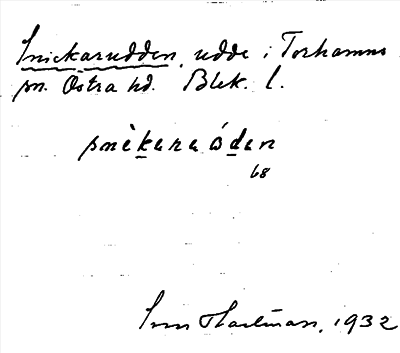 Snickarudden, udde i Torhamns
sn. Östra hd. Blek. l.
snèkaraóden
68
Sven Hartman, 1932